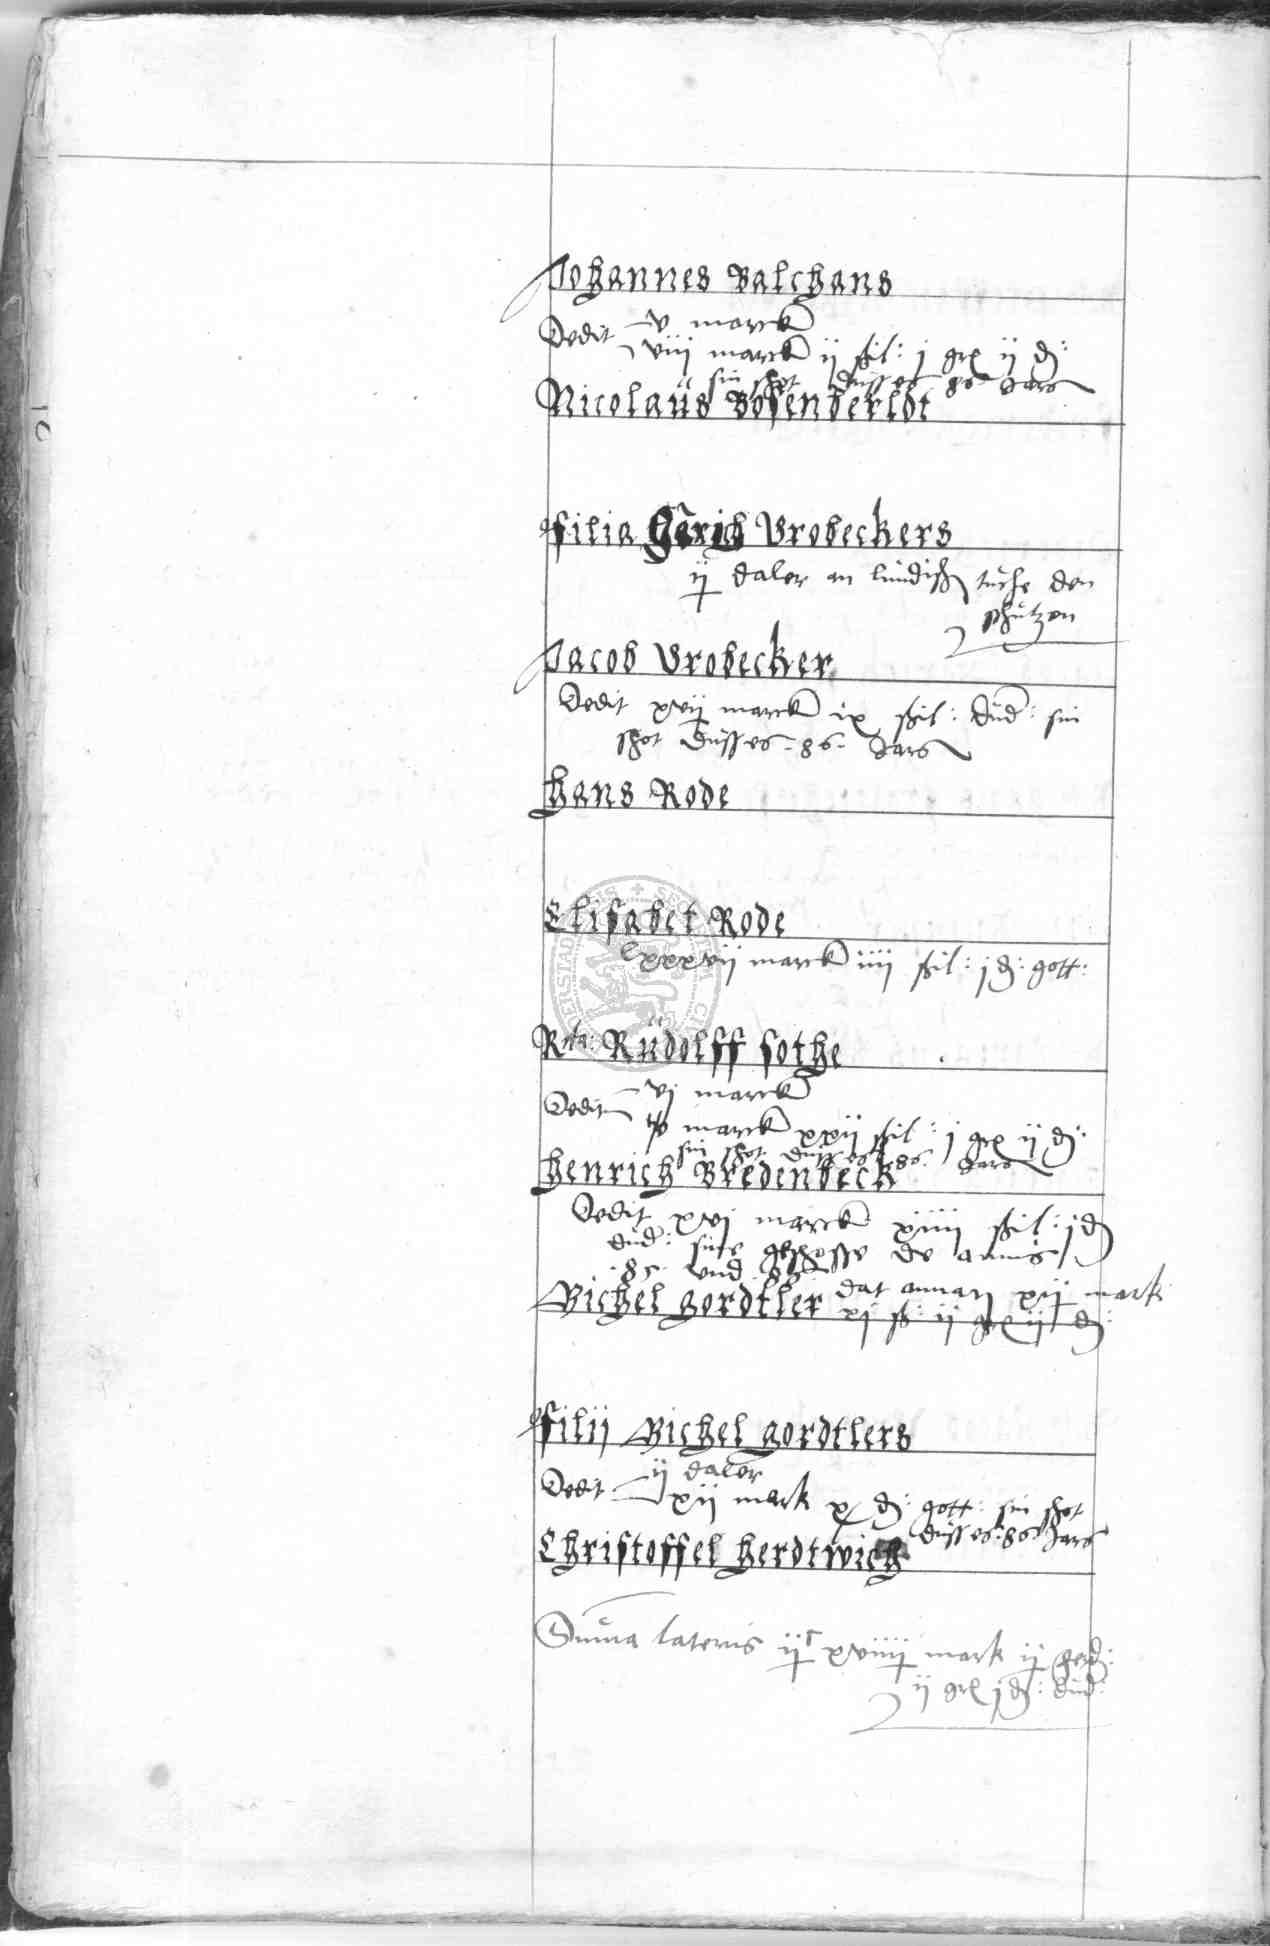 Johannes Balchans
Dedit v marck
viij marck ij ßil: j grl ij d:
sin shot dusses 86 Jars
Nicolaüs Bosenberldt
filia Hērich Vrobeckers
ij daler an lündiß tuche den
shützen
Jacob Vrobecker
Dedit xvij marck ix ßil: düd: sin
shot düsses .86. Jars
Hans Rode
Elisabet Rode
lxxxvij marck iiij ßil: j d: gott:
Rta: Rüdolff sothe
Dedit vj marck
marck xxij ßil: j grl ij d:
sin shot düsses 86. Jars
Henrich Bredenbeck
Dedit xvj marck xiiij ßil: j d
düd: sine geshosse de annis
.85. vnd 86
Michel gordtler dat annan xij mark
xj ß: ij grl ij d:
filij Michel gordtlers
Dedit ij daler
xij mark x d: gott: sin shot
düsses: 86 Jars
Christoffel Herdtwich
Suma lateris ijc xviiij mark ij ferd:
ij grl j d: düd: